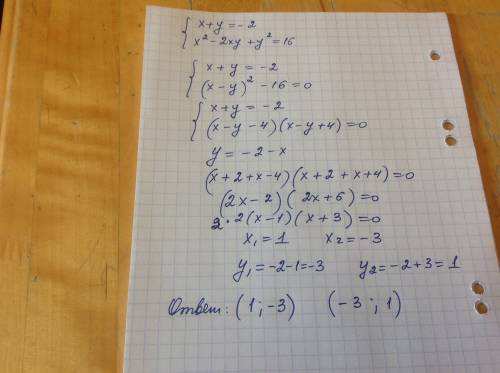 { x+y=-2
{ x²-2xy+y²=16
{ x+y=-2
{ (x-y)²-16=0
{ x+y=-2
{ (x-y-4)(x-y+4)=0
y=-2-x
(x+2+x-4)(x+2+x+4)=0
(2x-2)(2x+6)=0
2·2(x-1)(x+3)=0
x₁=1 x₂=-3
y₁=-2-1=-3 y₂=-2+3=1
Ответ: (1;-3) (-3;1)